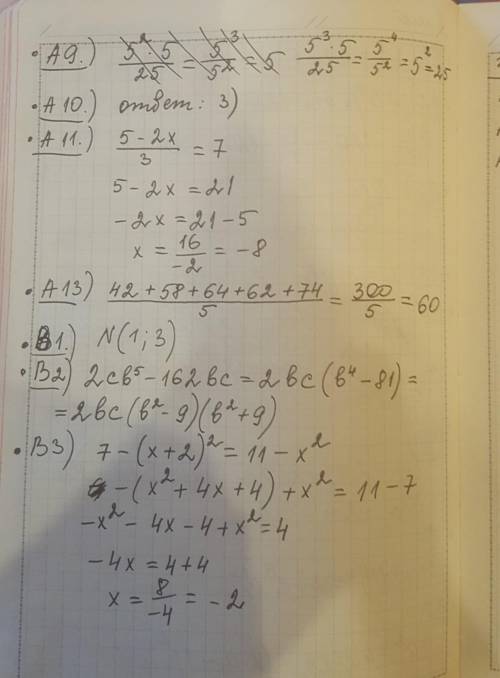 • А9.) 5²·5/25 = 5³/5² = 5 5³·5/25 = 5⁴/5² = 5² = 25
• А10.) ответ: 3)
• А11.) (5-2x)/3 = 7
5-2x = 21
-2x = 21-5
x = 16/-2 = -8
• А13) (42+58+64+62+74)/5 = 300/5 = 60
• В1.) N(1;3)
• В2) 2cb⁵-162bc = 2bc(b⁴-81) =
= 2bc(b²-9)(b²+9)
• В3) 7-(x+2)² = 11-x²
-(x²+4x+4)+x² = 11-7
-x²-4x-4+x² = 4
-4x = 4+4
x = 8/-4 = -2